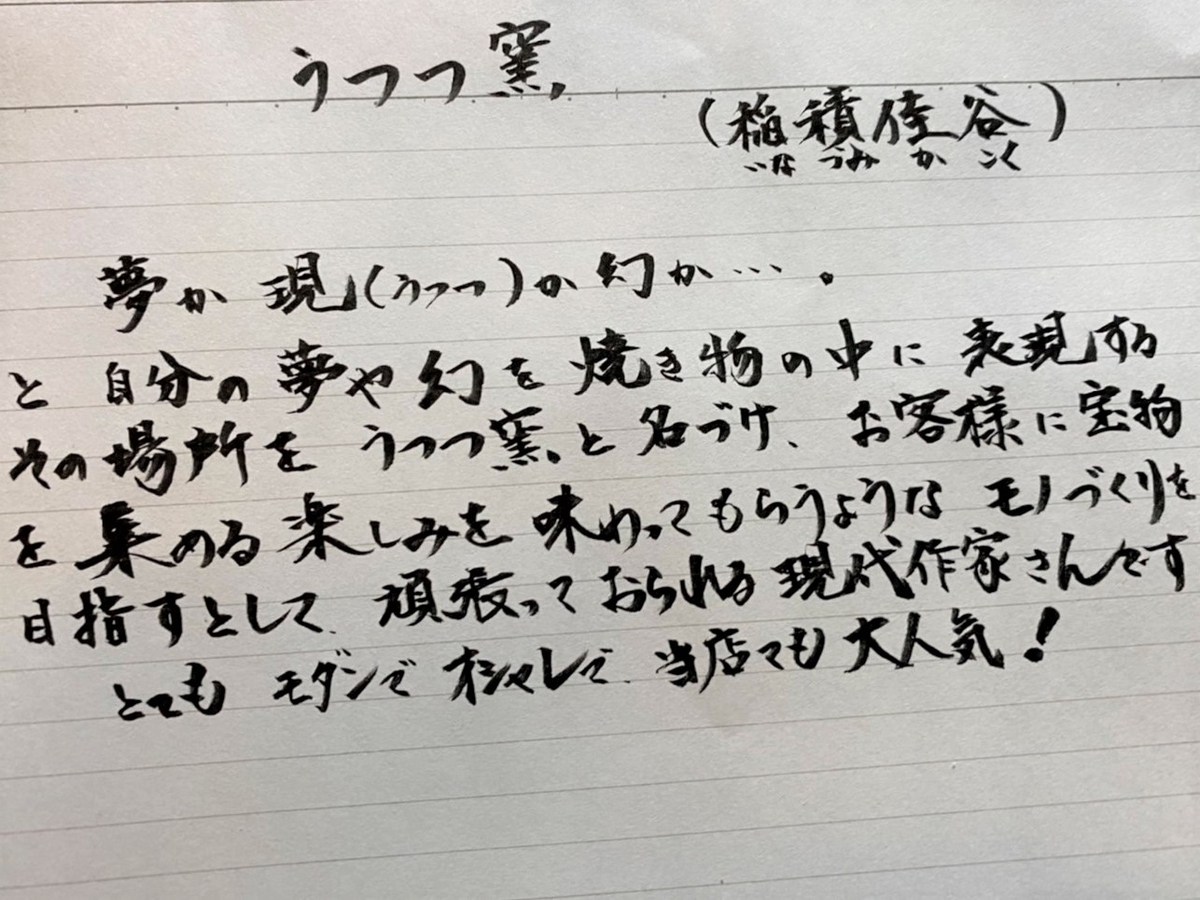 うつつ窯
(稲積佳谷)
いなづみかこく
夢か現(うつつ)か幻か…。
と自分の夢や幻を焼き物の中に表現する
その場所をうつつ窯と名づけ、お客様に宝物
を集める楽しみを味わってもらうようなモノづくりを
目指すとして、頑張っておられる現代作家さんです
とてもモダンでオシャレで、当店でも大人気!